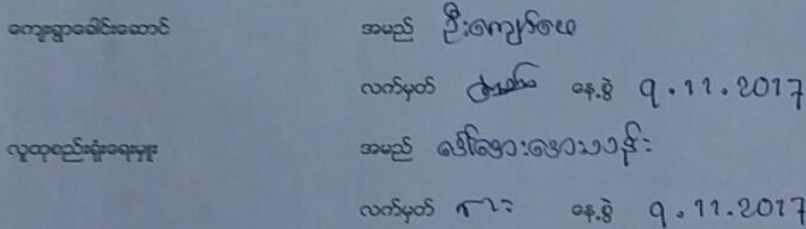 ကျေးရွာခေါင်းဆောင် အမည် ဦးကျော်ဖေ
လက်မှတ် နေ့စွဲ 9.11.2017
လူထုစည်းရုံးရေးမှူး အမည် ဒေါ်အေးအေးသန်း
လက်မှတ် နေ့စွဲ 9.11.2017